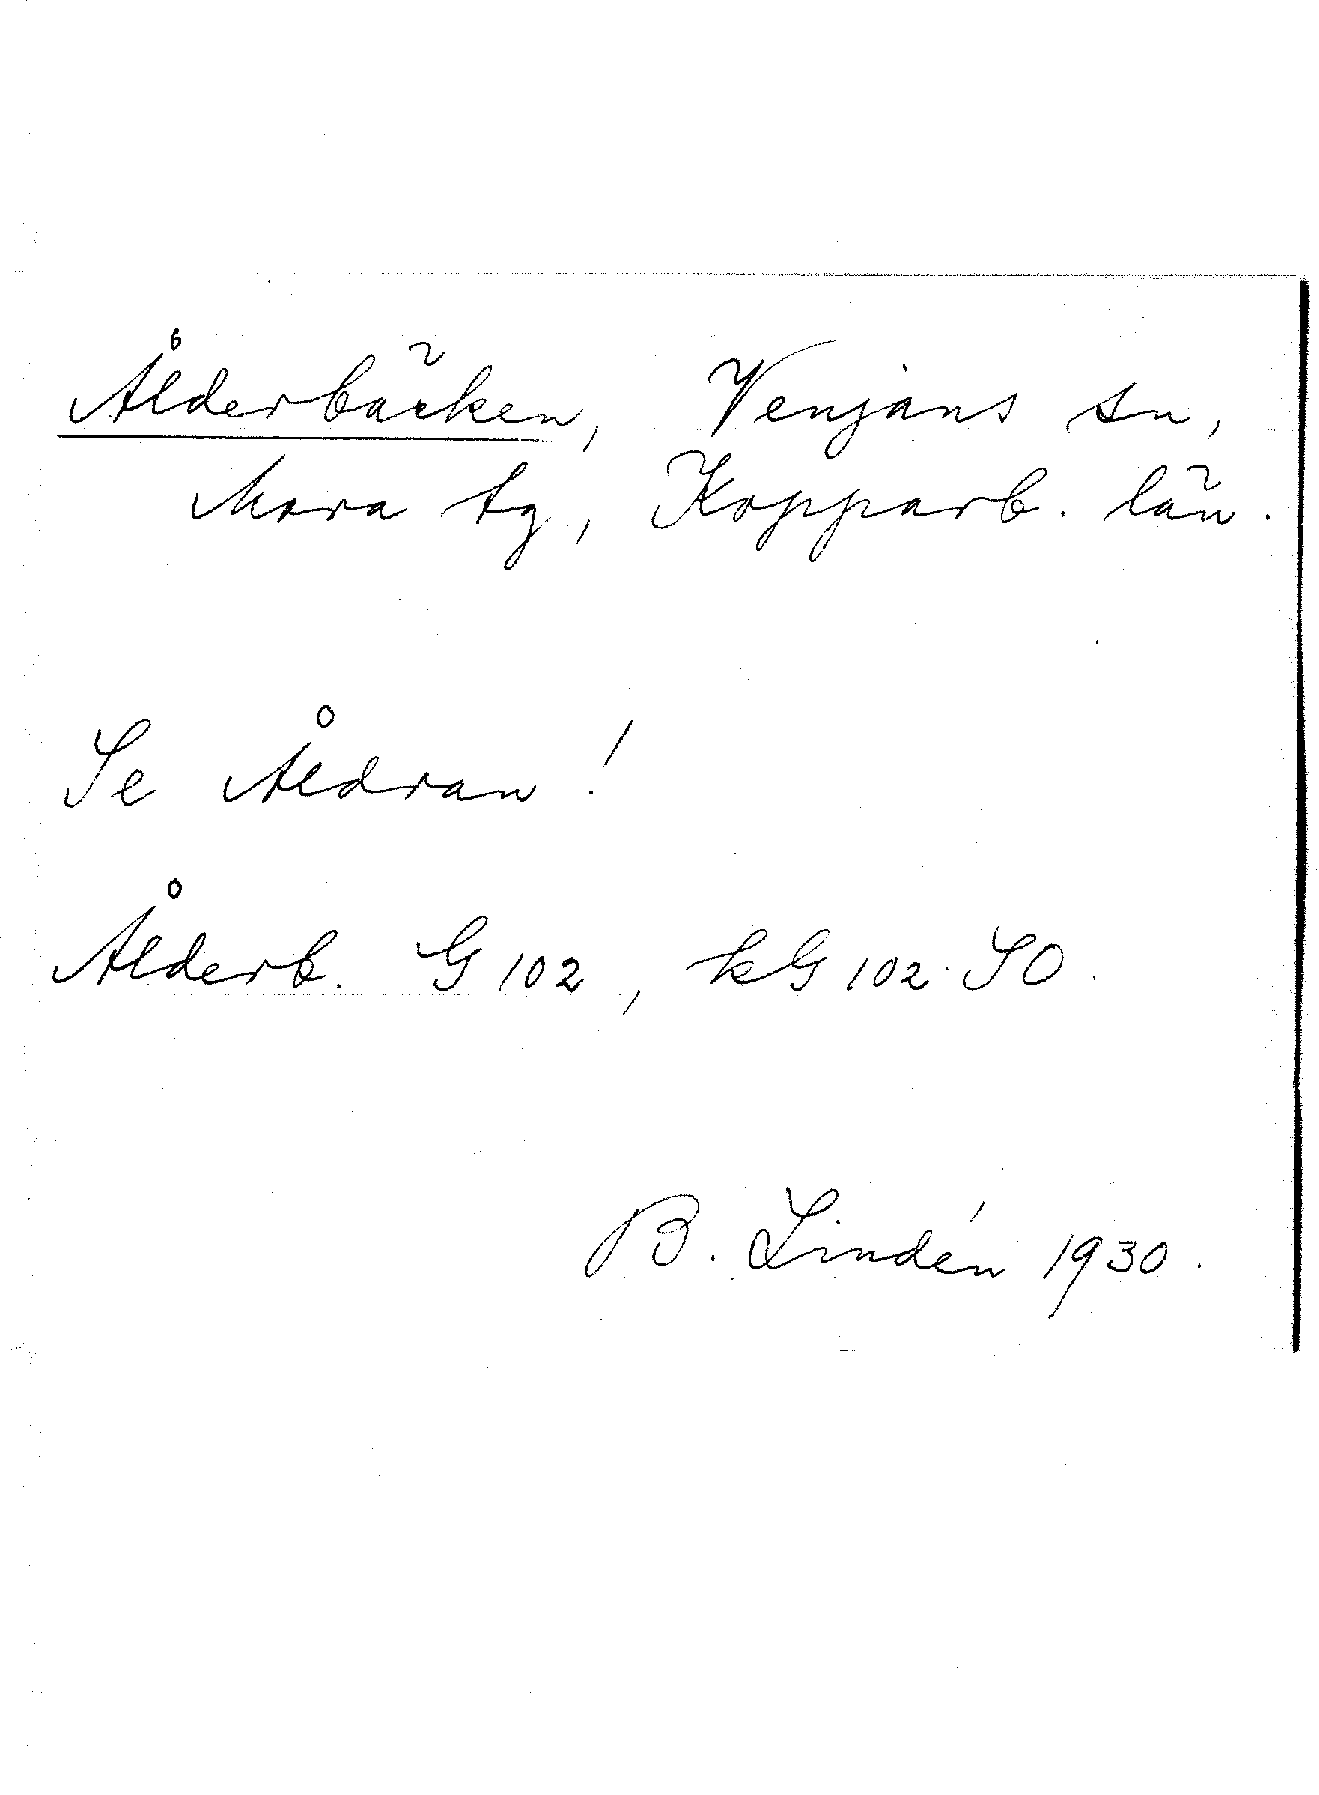 Ålderbäcken, Venjans sn,
Mora tg, Kopparb. län.
Se Åldran!
Ålderb. G 102, kG 102 SO.
B. Lindén 1930.